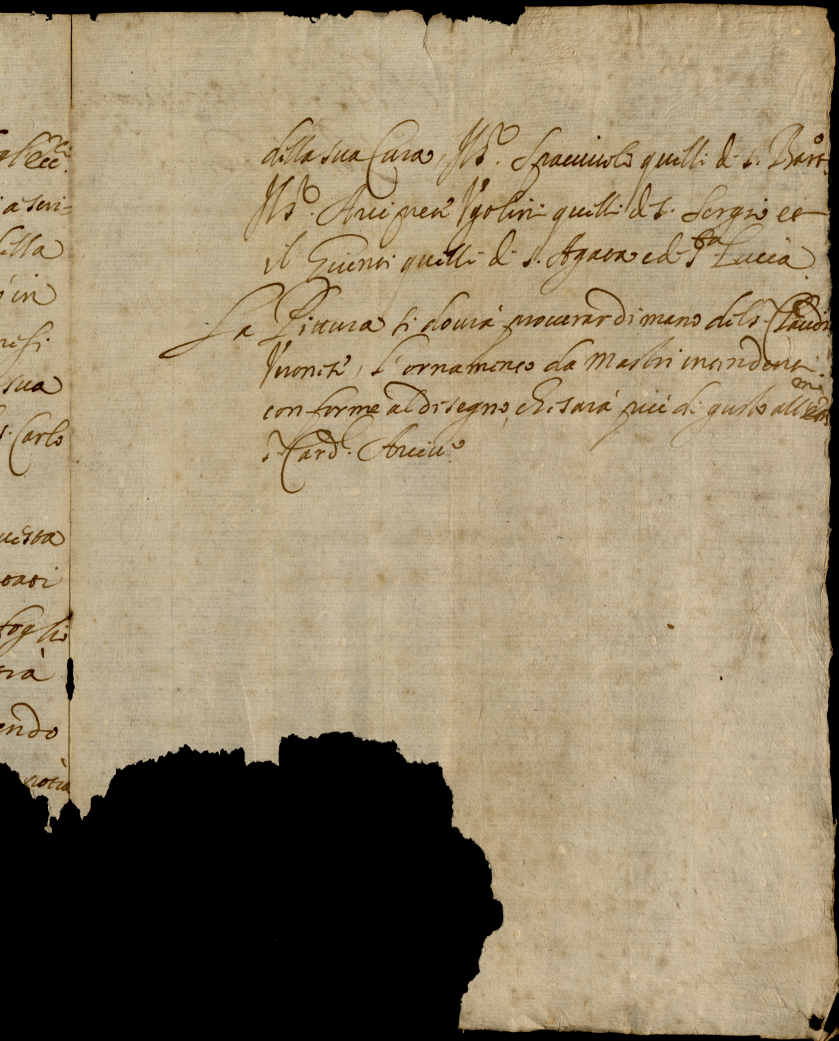 gl'ecc.ri
a seri-
della
in
resi
sua
S. Carlo
questa
fogli
endo
notia
della sua Cura, Ill.o Spacciuoli quelli di S. Bart.o
Ill.o Arciprete Ugolini quelli di S. Sergio et
il Giunti quelli di S. Agata e di S.ta Lucia
La Pittura si dovrà procurar di mano del S. Claudio
Veronese, l'ornamento da Mastri intendenti
conforme al disegno, che sarà più di gusto all'Em.mo
S. Card.l Arciv.o